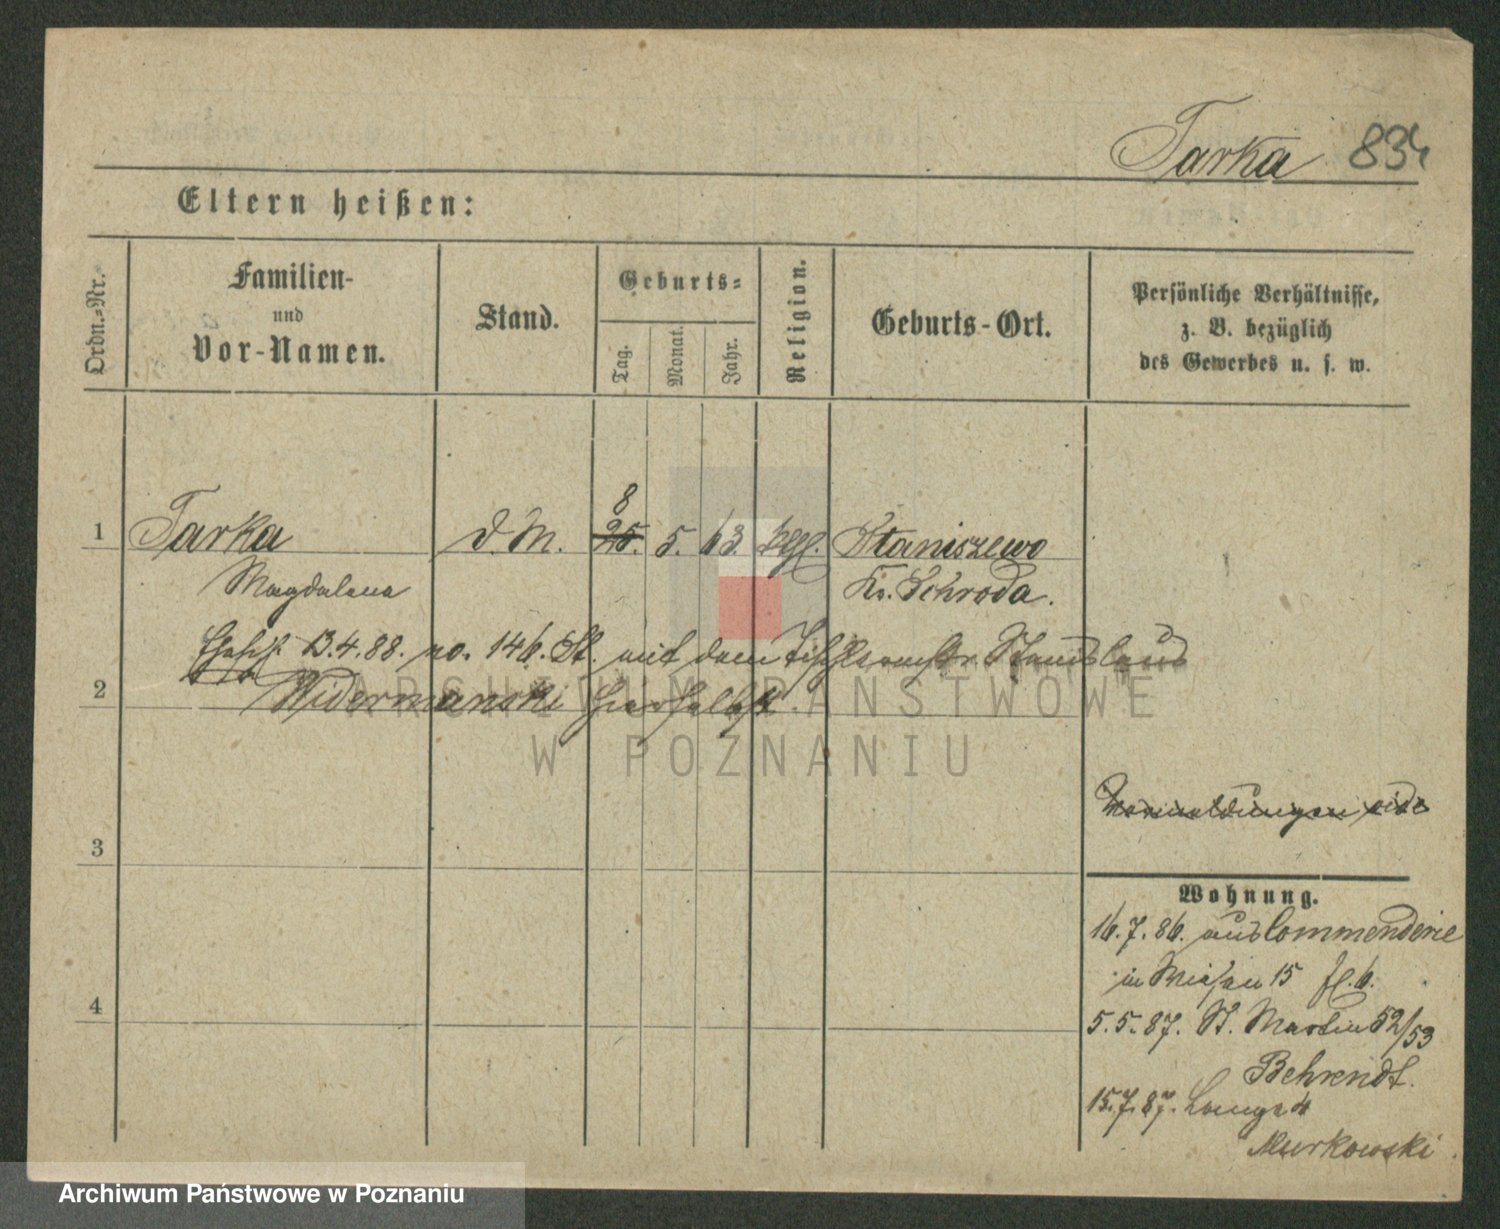 Tarka 834
Eltern heißen:
Ordn.-Nr.
Familien-
und
Vor-Namen.
Stand.
Geburts-
Tag.
Monat.
Jahr.
Religion.
Geburts-Ort.
Persönliche Verhältnisse,
z. B. bezüglich
des Gewerbes u. s. w.
1 Tarka d. M. 25. 5. 63. kgl. Staniszewo
8
Magdalena Kr. Schroda.
13.4.88. no. 146. St. mit dem Tischlermstr. Stanislaus
2 Widermanski hierselbst.
ARCHIWUM PAŃSTWOWE
W POZNANIU
3
4
Wohnung.
16.7.86. aus Commenderie
in 15 fl. 6.
5.5.87. St. Martin 52/53
Behrendt.
15.7.87. Lange 4
Murkowski
Archiwum Państwowe w Poznaniu